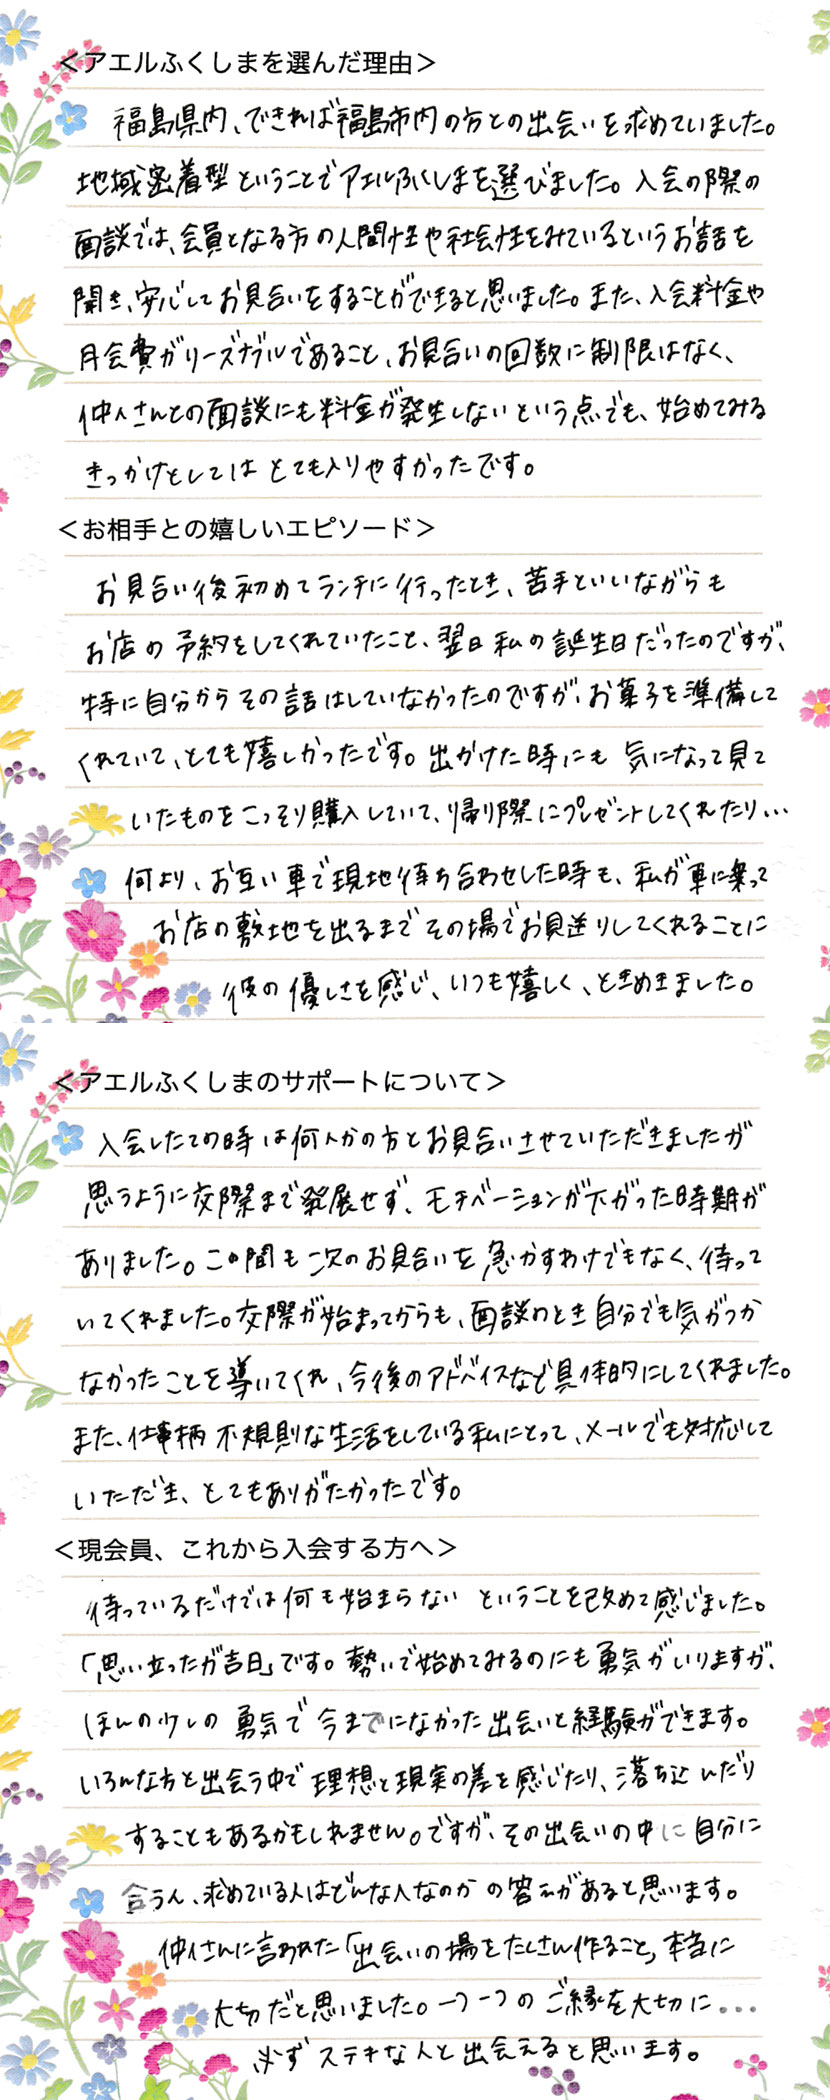 ＜アエルふくしまを選んだ理由＞
福島県内、できれば福島市内の方との出会いを求めていました。
地域密着型ということでアエルふくしまを選びました。入会の際の
面談では、会員となる方の人間性や社会性をみているというお話を
聞き、安心してお見合いをすることができると思いました。また、入会料金や
月会費がリーズナブルであること、お見合いの回数に制限はなく、
仲人さんとの面談にも料金が発生しないという点でも、始めてみる
きっかけとしてはとても入りやすかったです。
＜お相手との嬉しいエピソード＞
お見合い後初めてランチに行ったとき、苦手といいながらも
お店の予約をしてくれていたこと、翌日私の誕生日だったのですが、
特に自分からその話はしていなかったのですが、お菓子を準備して
くれていて、とても嬉しかったです。出かけた時にも気になって見て
いたものをこっそり購入していて、帰り際にプレゼントしてくれたり…
何より、お互い車で現地待ち合わせした時も、私が車に乗って
お店の敷地を出るまでその場でお見送りしてくれることに
彼の優しさを感じ、いつも嬉しく、ときめきました。
＜アエルふくしまのサポートについて＞
入会したての時は何人かの方とお見合いさせていただきましたが
思うように交際まで発展せず、モチベーションが下がった時期が
ありました。この間も次のお見合いを急かすわけでもなく、待って
いてくれました。交際が始まってからも、面談のとき自分でも気がつか
なかったことを導いてくれ、今後のアドバイスなど具体的にしてくれました。
また、仕事柄不規則な生活をしている私にとって、メールでも対応して
いただき、とてもありがたかったです。
＜現会員、これから入会する方へ＞
待っているだけでは何も始まらないということを改めて感じました。
「思い立ったが吉日」です。勢いで始めてみるのにも勇気がいりますが、
ほんの少しの勇気で今までになかった出会いと経験ができます。
いろんな方と出会う中で理想と現実の差を感じたり、落ち込んだり
することもあるかもしれません。ですが、その出会いの中に自分に
合う人、求めている人はどんな人なのかの答えがあると思います。
仲人さんに言われた「出会いの場をたくさん作ること」本当に
大切だと思いました。一つ一つのご縁を大切に...
必ずステキな人と出会えると思います。